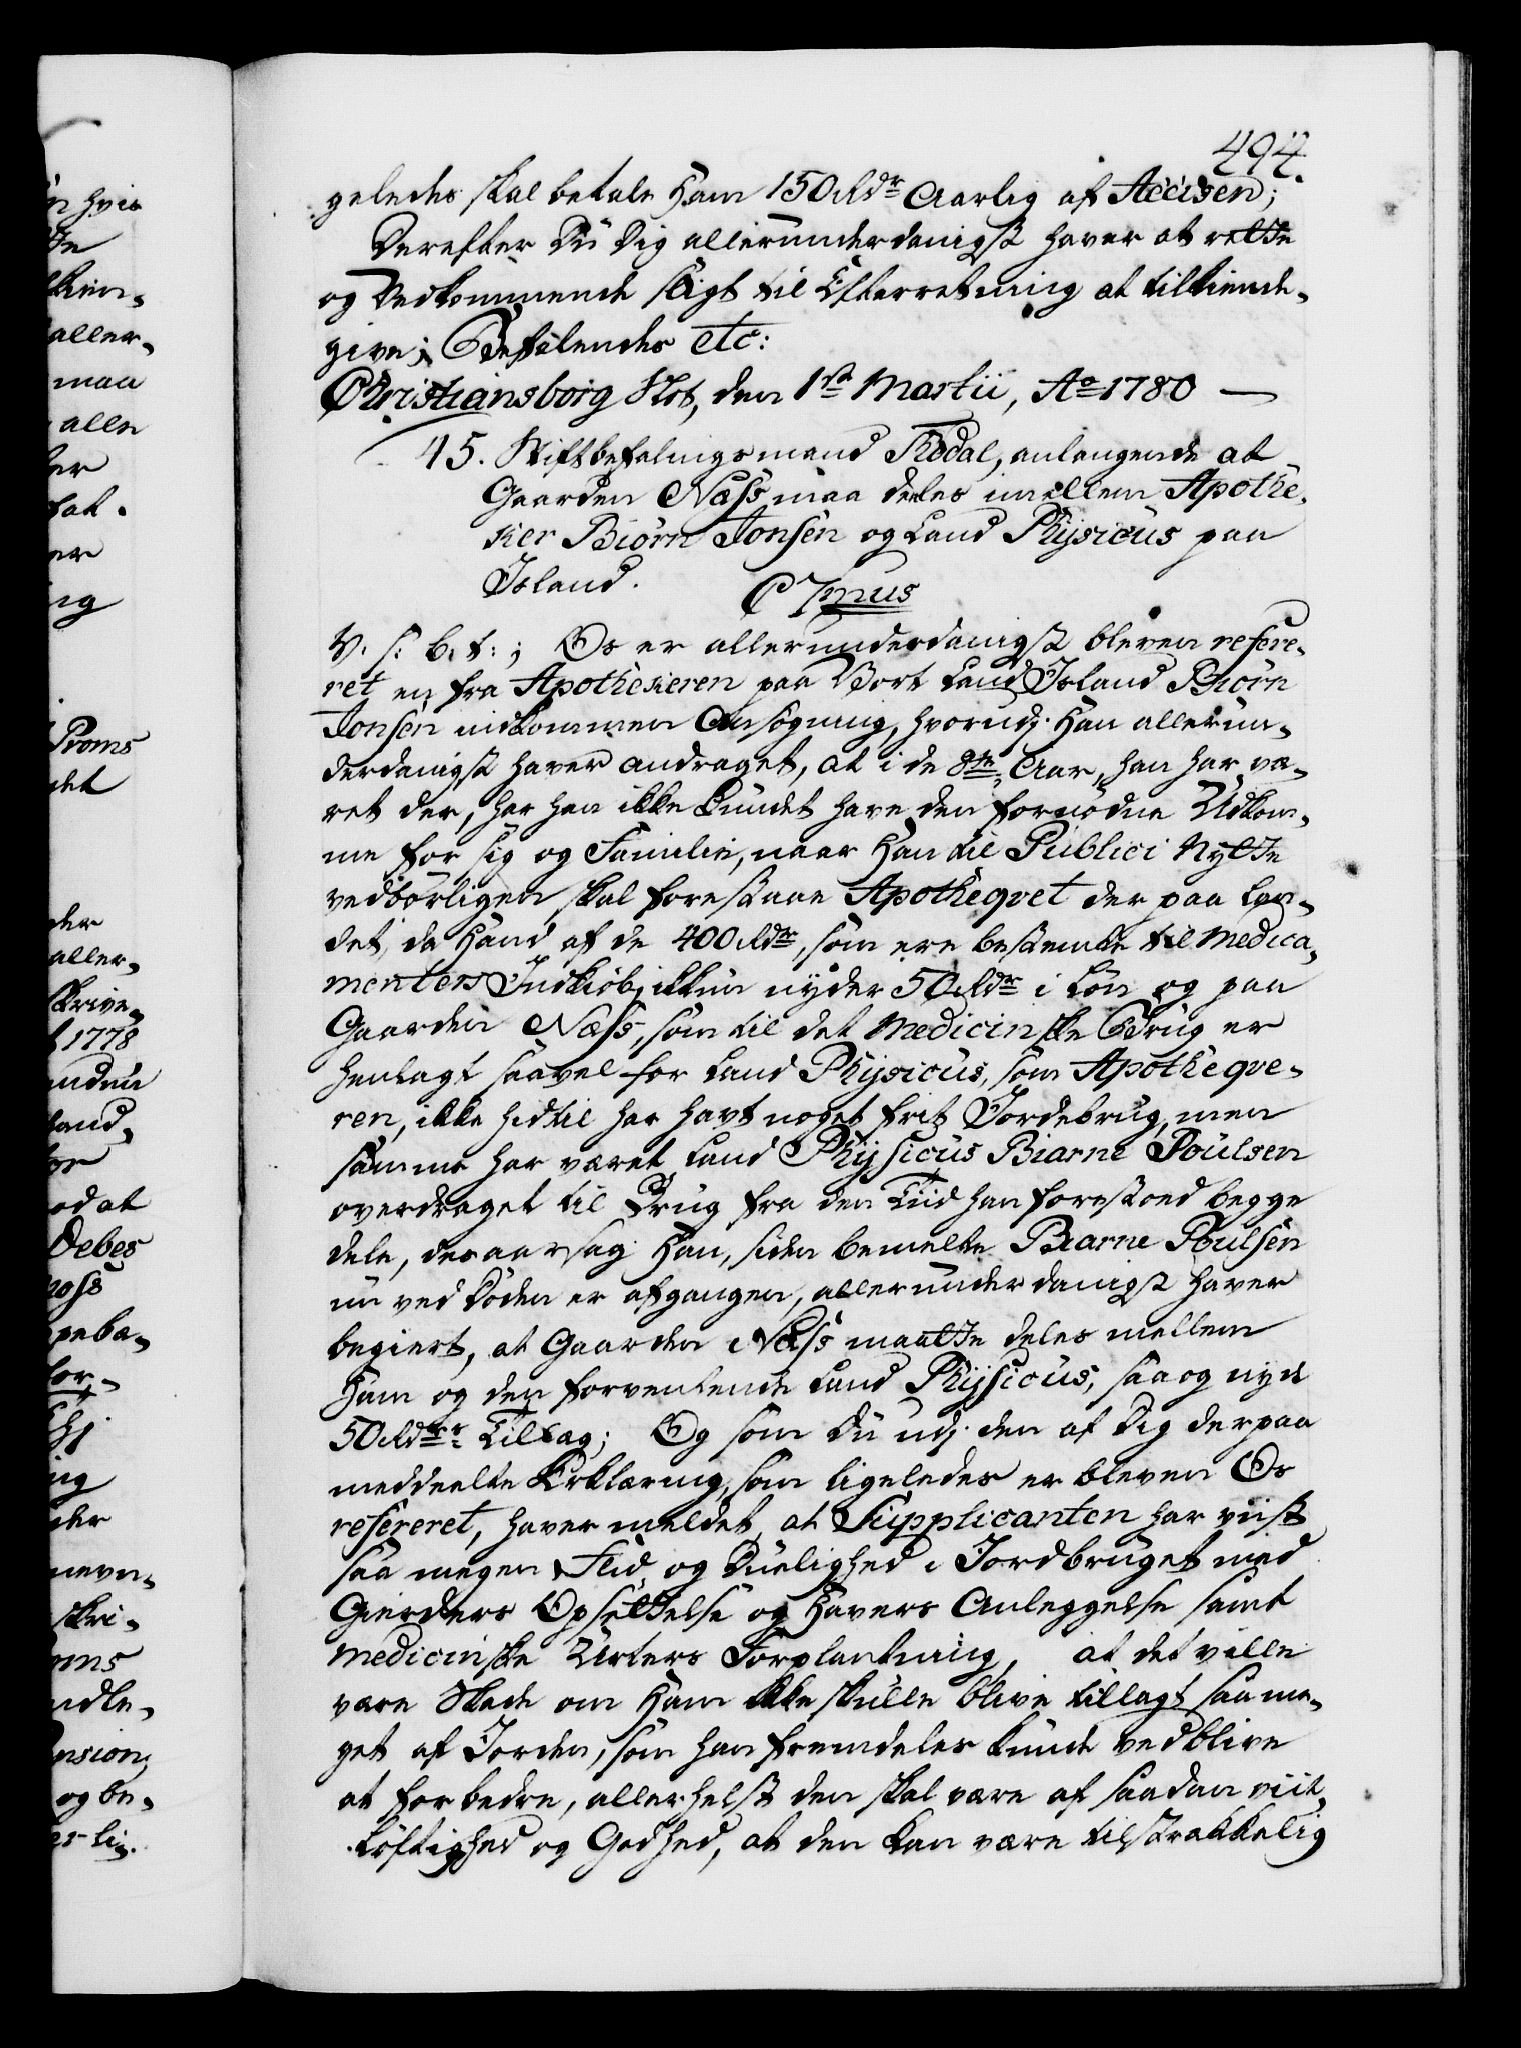 494.
geledes skal betale Ham 150 Rdr Aarlig af Accisen;
Derefter Du Dig allerunderdanigst haver at rette
og Vedkommende sligt til Efterretning at tilkiende-
give; Befalendes etc:
Christiansborg Slot, den 1ste Martii, Ao 1780 —
45. Stiftbefalingsmand Thodal, anlangende at
Gaarden Næss maa deeles imellem Apothe-
ker Biörn Jonsen og Land Physicus paa
Island.
C 7mus
V. s: b. t: ; Os er allerunderdanigst bleven refere-
ret en fra Apothekeren paa Vort Land Island Biörn
Jonsen indkommen Ansøgning, hvorudj Han allerun-
derdanigst haver andraget, at i de 8te Aar, han har væ-
ret der, har han ikke kundet have den fornødne Udkom-
me for sig og Familie, naar Han til Publici Nytte
vedbørligen skal forestaae Apotheqvet der paa Lan-
det, da Hand af de 400 Rdr, som ere bestemte til Medica-
menters Indkiøb, ikkun nyder 50 Rdr i Løn og paa
Gaarden Næss, som til det Medicinske Brug er
henlagt saavel for Land Physicus, som Apotheqve-
ren, ikke hidtil har havt noget frit Jordebrug, men
samme har været Land Physicus Biarne Poulsen
overdraget til Brug fra den Tiid han forestoed begge
dele, desaarsag Han, siden bemelte Biarne Poulsen
nu ved Døden er afgangen, allerunderdanigst haver
begiert, at Gaarden Næss maatte deles mellem
Ham og den forventende Land Physicus, saa og nyde
50 Rdrs Tillæg; Og som Du udj den af Dig derpaa
meddeelte Erklæring, som ligeledes er bleven Os
refereret, haver meldet, at Supplicanten har viist
saa megen Flid og Duelighed i Jordbruget med
Gierders Opsettelse og Havers Anleggelse samt
medicinske Urters Forplantning, at det ville
være Skade om Ham ikke skulle blive tillagt saa me-
get af Jorden, som han fremdeles kunde vedblive
at forbedre, allerhelst den skal være af saadan viit-
løftighed og Godhed, at den kan være tilstrækkelig